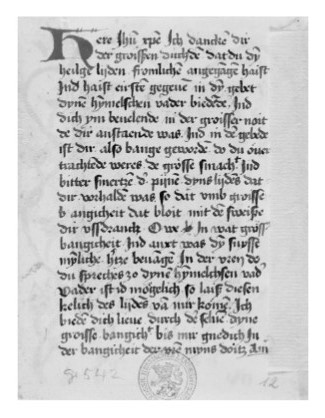 Here Jhū xpē Ich dancke dir
der groissen duchdē dat du dÿ
heilge lyden fromlichē angegāge haist
Ind haist eirste gegeuē in dÿ gebet
dyne hymelschen vader biedēde. Ind
dich ym beuelende in der groisser noit
de dir anstaende was. Ind in dē gebede
ist dir also bange gewordē do du ouer
trachtēde weres de grosse smacht Ind
bitter smertzē pijnē dyns lydēs dat
dir vorhalde was so dat vmb groisse
bangicheit dat bloit mit dē sweisse
dir vssdranck Owe In wat grois
bangicheit Ind anxt was dÿ suysse
mȳliche htze beuāge In der vren do
du spreches zo dyne hymelschen vad
Vader ist id mogelich so lais diesen
kelich des lydēs vā mir komē. Ich
biede dich lieue durch de selue dyne
groisse bangicht bis mir gnedich In
der bangicheit der vren myns doitz Am
12